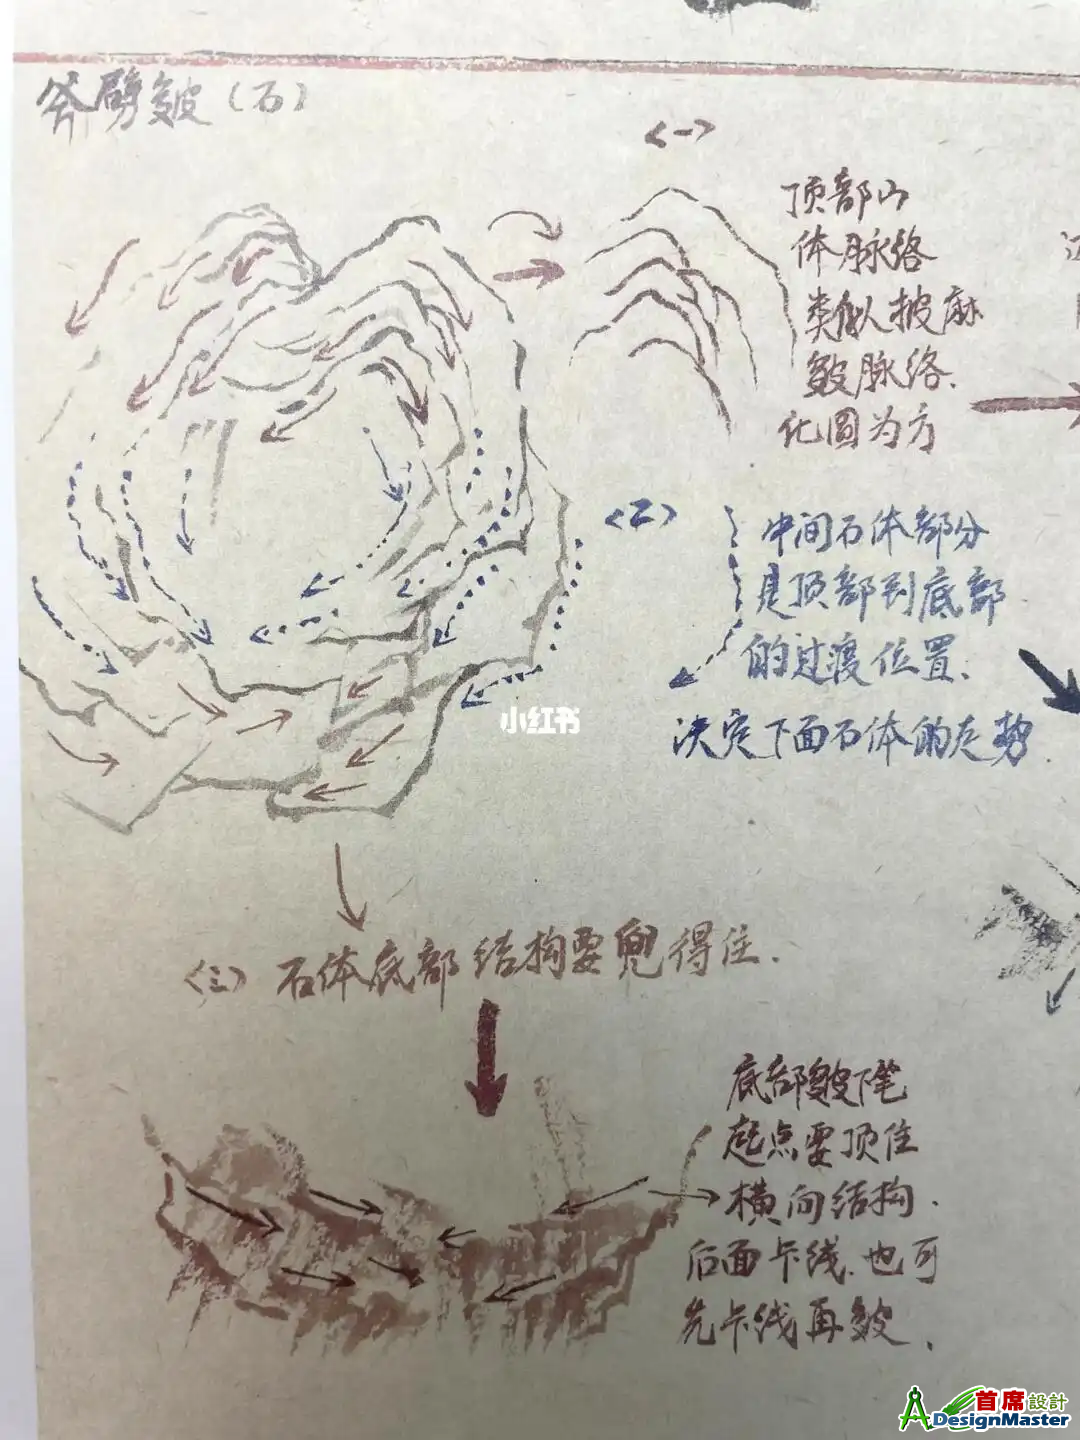 斧劈皴(石)
<一>
顶部山
体脉络
类似披麻
皴脉络.
化圆为方
<二>
中间石体部分
是顶部到底部
的过渡位置.
决定下面石体的走势.
小红书
<三> 石体底部结构要兜得住.
底部皴下笔
起点要顶住
横向结构.
后面卡线.也可
先卡线再皴.
首席設計
DesignMaster